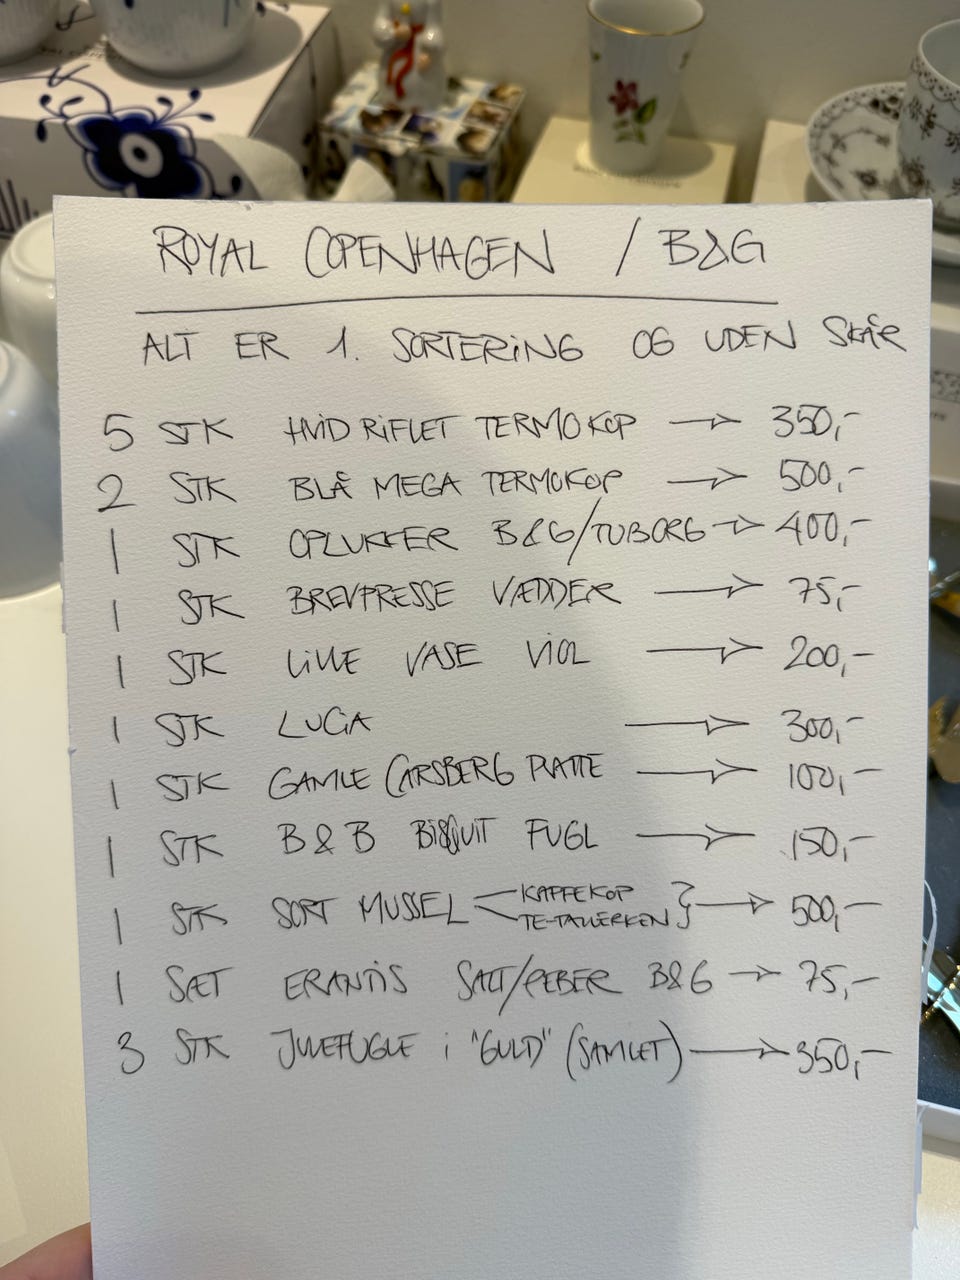 ROYAL COPENHAGEN / B&G
ALT ER 1. SORTERING OG UDEN SKÅR
5 STK HVID RIFLET TERMOKOP → 350,-
2 STK BLÅ MEGA TERMOKOP → 500,-
1 STK OPLUKKER B&G/TUBORG → 400,-
1 STK BREVPRESSE VÆDDER → 75,-
1 STK LILLE VASE VIOL → 200,-
1 STK LUCIA → 300,-
1 STK GAMLE CARSBERG PLATTE → 100,-
1 STK B&B BISQUIT FUGL → 150,-
1 STK SORT MUSSEL < KAFFEKOP TE-TALLERKEN } → 500,-
1 SÆT ERANTIS SALT/PEBER B&G → 75,-
3 STK JULEFUGLE i "GULD" (SAMLET) → 350,-